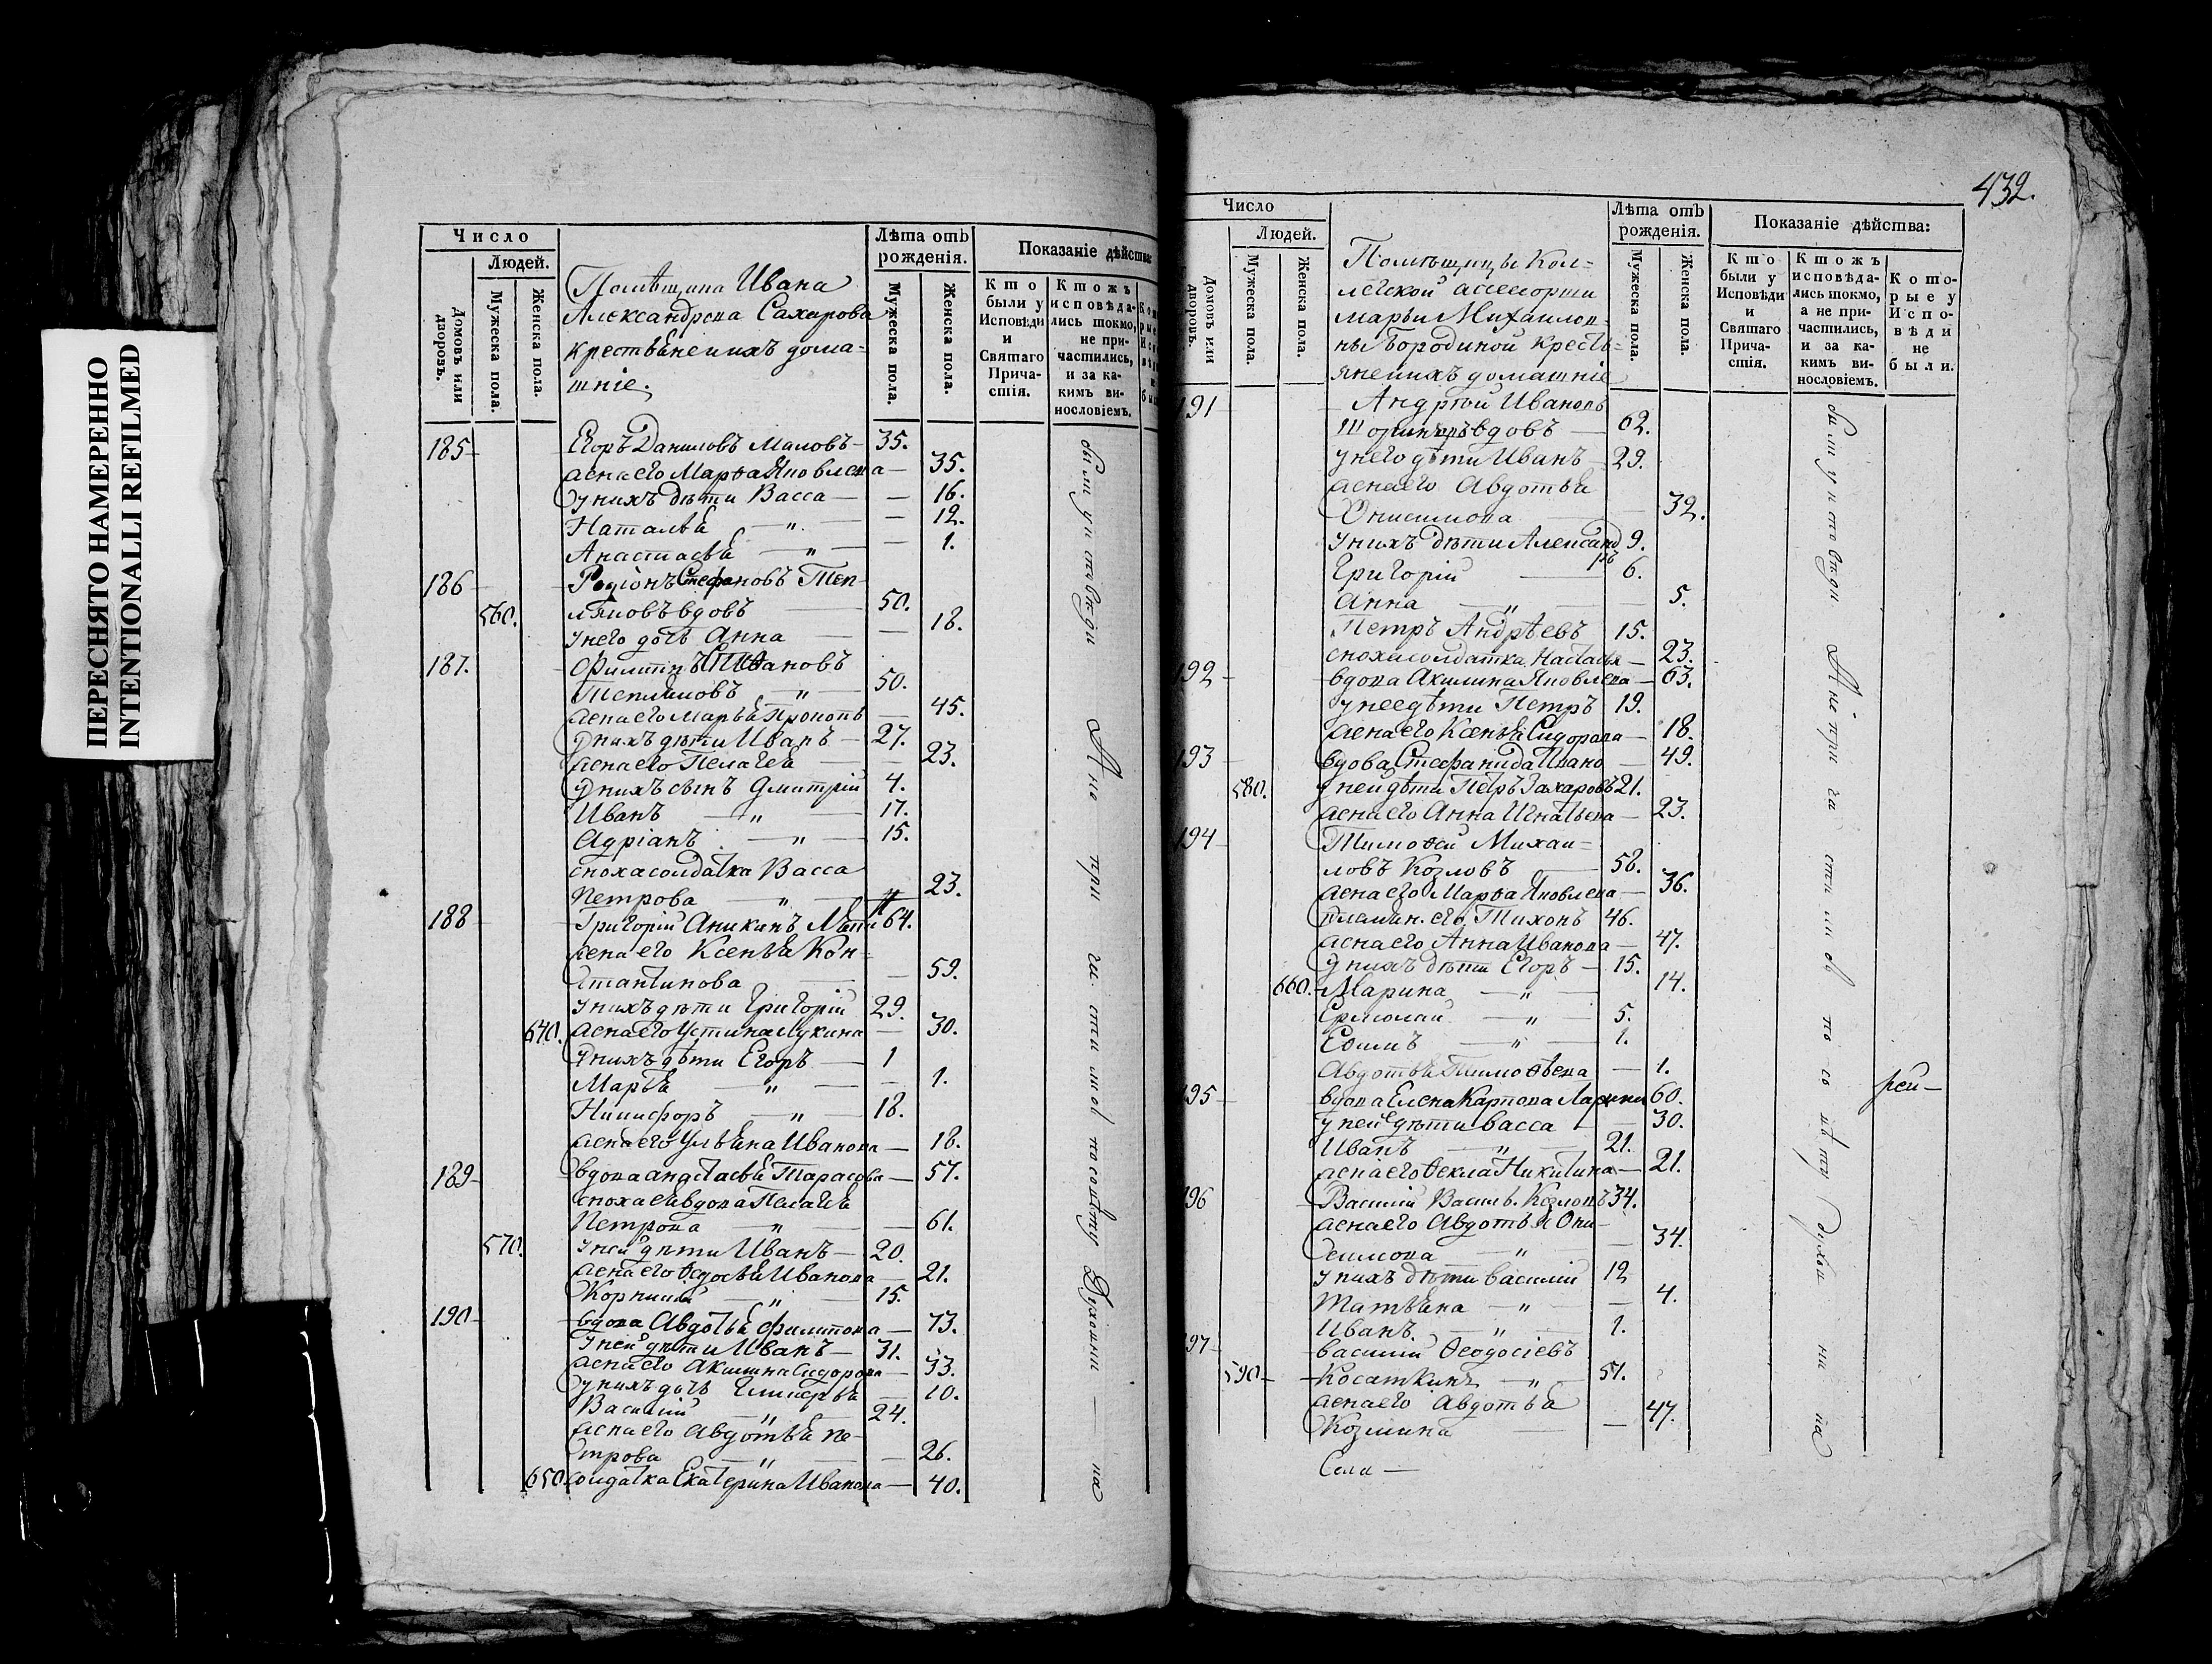 ПЕРЕСНЯТО НАМЕРЕННО
INTENTIONALLI REFILMED
Число
Людей.
Домовъ или дворовъ.
Мужеска пола.
Женска пола.
Помѣщика Ивана
Александрова Сахарова
крестьяне и ихъ дома-
шніе.
Лѣта отъ рожденія.
Мужеска пола.
Женска пола.
Показаніе дѣйства:
Кто были у Исповѣди и Святаго Причастія.
Ктожъ исповѣдались токмо, не причастились, и за какимъ винословіемъ.
185 Егоръ Даниловъ 35.
жена его Марѳа Яковлева 35.
у нихъ дѣти Васса — 16.
Наталья — „ — 12.
Анастасья — „ — 1.
186 Родіонъ Стефановъ Теп-
560. ляковъ вдовъ — 50.
у него дочь Анна — 18.
187. Филиппъ Стефановъ
Тепляковъ — „ — 50.
жена его Марья Прокопь — 45.
у нихъ дѣти Иванъ — 27.
жена его Пелагея — 23.
у нихъ сынъ Дмитрій 4.
Иванъ — „ — 17.
Адріанъ — „ — 15.
сноха солдатка Васса
Петрова — „ — 23.
188 Григорій Аникинъ 64.
жена его Ксенья Кон-
стантинова — 59.
у нихъ дѣти Григорій 29.
640. жена его Устина Лукина — 30.
у нихъ дѣти Егоръ — 1
Марья — „ — 1.
Никифоръ — „ — 18.
жена его Ульяна Иванова — 18.
189 вдова Анастасья Тарасова — 57.
сноха ея вдова Пелагея
Петрова — „ — 61.
570. у ней дѣти Иванъ — 20.
жена его Ѳедосья Иванова — 21.
Корнилій — „ — 15.
190 вдова Авдотья Филипова — 73.
у ней дѣти Иванъ — 31.
жена его Акилина Сидорова — 33.
у нихъ дочь Гликерья — 10.
Василій — „ — 24.
жена его Авдотья Пе-
трова — „ — 26.
650. солдатка Екатерина Иванова — 40.
были у исповѣди А не при ча сти лись по совѣту Духовни — ка
432.
Число
Людей.
Домовъ или дворовъ.
Мужеска пола.
Женска пола.
Помѣщицы Кол-
лежской асессорши
Марьи Михаилов-
ны Бородиной кресть-
яне и ихъ домашніе
Лѣта отъ рожденія.
Мужеска пола.
Женска пола.
Показаніе дѣйства:
Кто были у Исповѣди и Святаго Причастія.
Ктожъ исповѣдались токмо, а не причастились, и за какимъ винословіемъ.
Которые у Исповѣди не были.
191 Андрей Ивановъ
вдовъ — 62.
у него дѣти Иванъ — 29.
жена его Авдотья
Онисимова — 32.
у нихъ дѣти Александръ 9.
Григорій — 6.
Анна — „ — 5.
Петръ Андрѣевъ 15.
сноха солдатка Настасья — 23.
192 вдова Акилина Яковлева — 63.
у нее дѣти Петръ 19.
жена его Ксенья Сидорова — 18.
193 вдова Стефанида Ивано — 49.
580. у ней дѣти Петръ Захаровъ 21.
жена его Анна Игнатьева — 23.
194 Тимоѳей Михаи-
ловъ Козловъ — 58.
жена его Марѳа Яковлева — 36.
племян. его Тихонъ 46.
жена его Анна Иванова — 47.
у нихъ дѣти Егоръ — 15.
660. Марина — „ — 14.
Ермолай — „ — 5.
Еѳимъ — „ — 1.
Авдотья Тимоѳѣева — 1.
195 вдова Елена Карпова 60.
у ней дѣти Васса — 30.
Иванъ — „ — 21.
жена его Ѳекла Никитина — 21.
196 Василій Васильв. Козловъ 34.
жена его Авдотья Они-
симова — „ — 34.
у нихъ дѣти Василій 12
Татьяна — „ — 4.
Иванъ — „ — 1.
197 Василій Ѳеодосіевъ
590 — Косаткинъ — „ — 51.
жена его Авдотья
Козмина — 47.
Села —
были у исповѣди А не при ча сти ли сь по со вѣ ту Духов ни ка